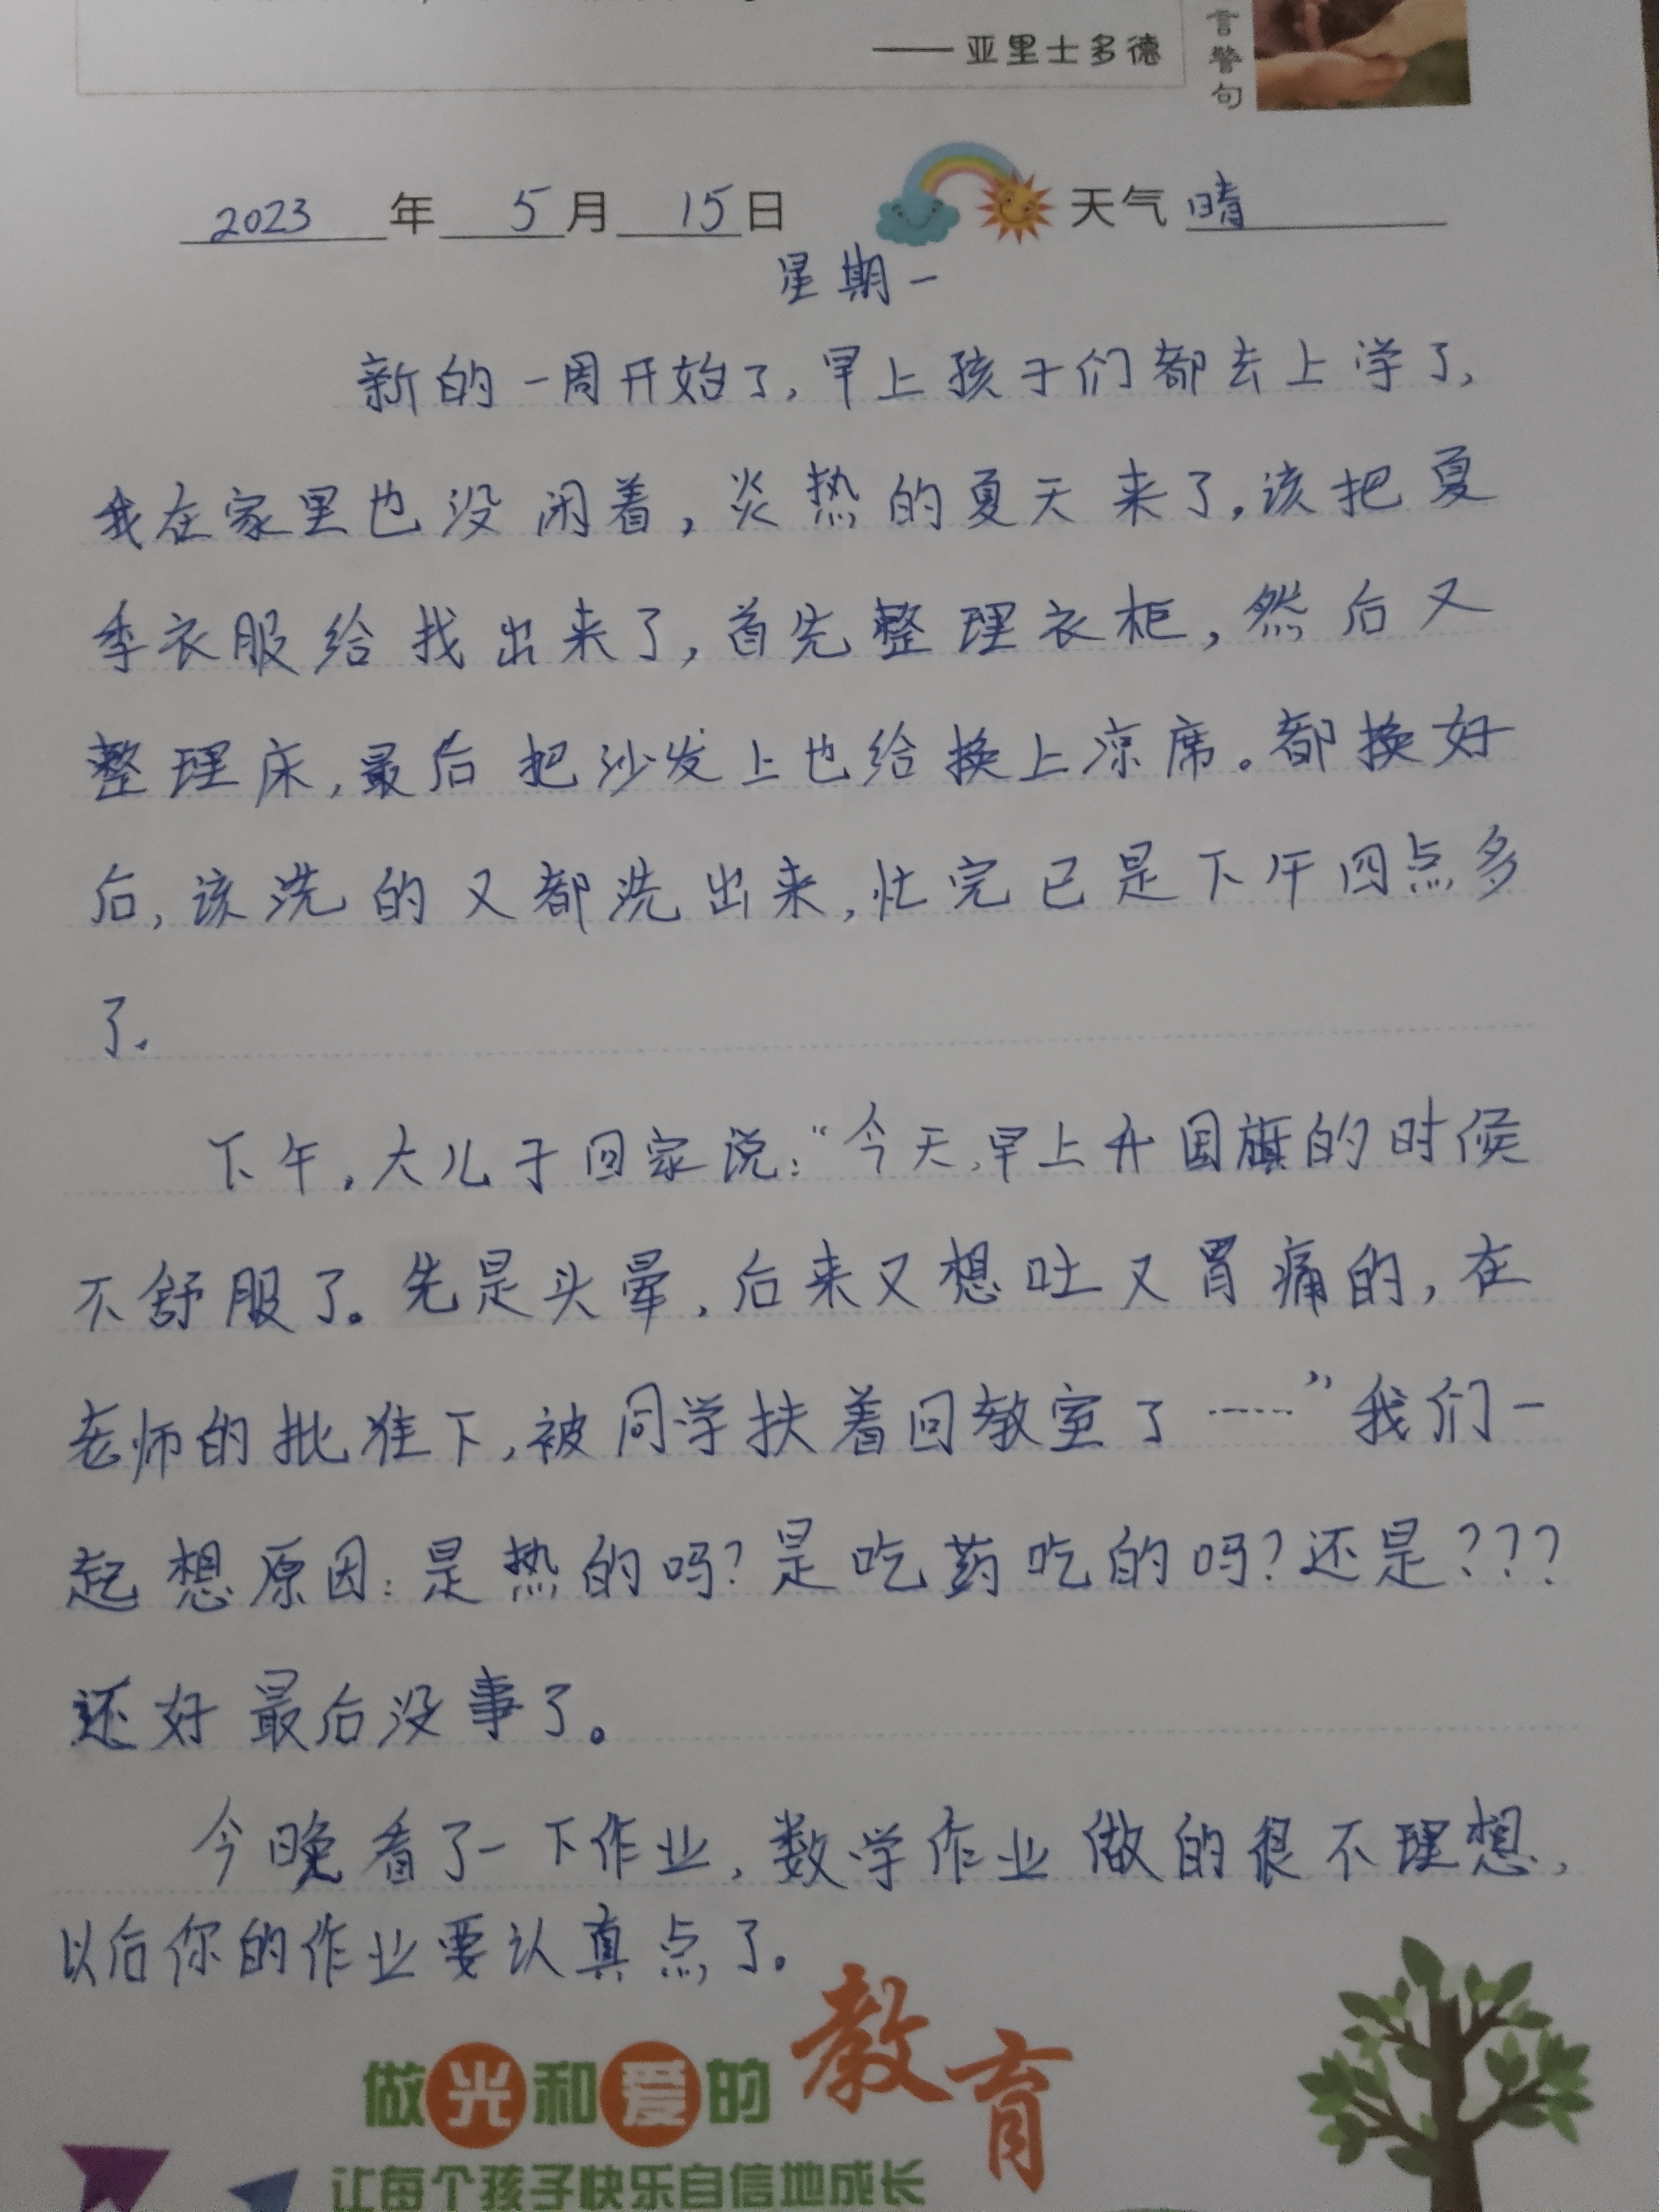 ——亚里士多德
言警句
2023年5月15日 天气晴
星期一
新的一周开始了,早上孩子们都去上学了,
我在家里也没闲着,炎热的夏天来了,该把夏
季衣服给找出来了,首先整理衣柜,然后又
整理床,最后把沙发上也给换上凉席。都换好
后,该洗的又都洗出来,忙完已是下午四点多
了.
下午,大儿子回家说:“今天,早上升国旗的时候
不舒服了。先是头晕,后来又想吐又胃痛的,在
老师的批准下,被同学扶着回教室了……”我们一
起想原因:是热的吗?是吃药吃的吗?还是???
还好最后没事了。
今晚看了一下作业,数学作业做的很不理想,
以后你的作业要认真点了。
做光和爱的教育
让每个孩子快乐自信地成长